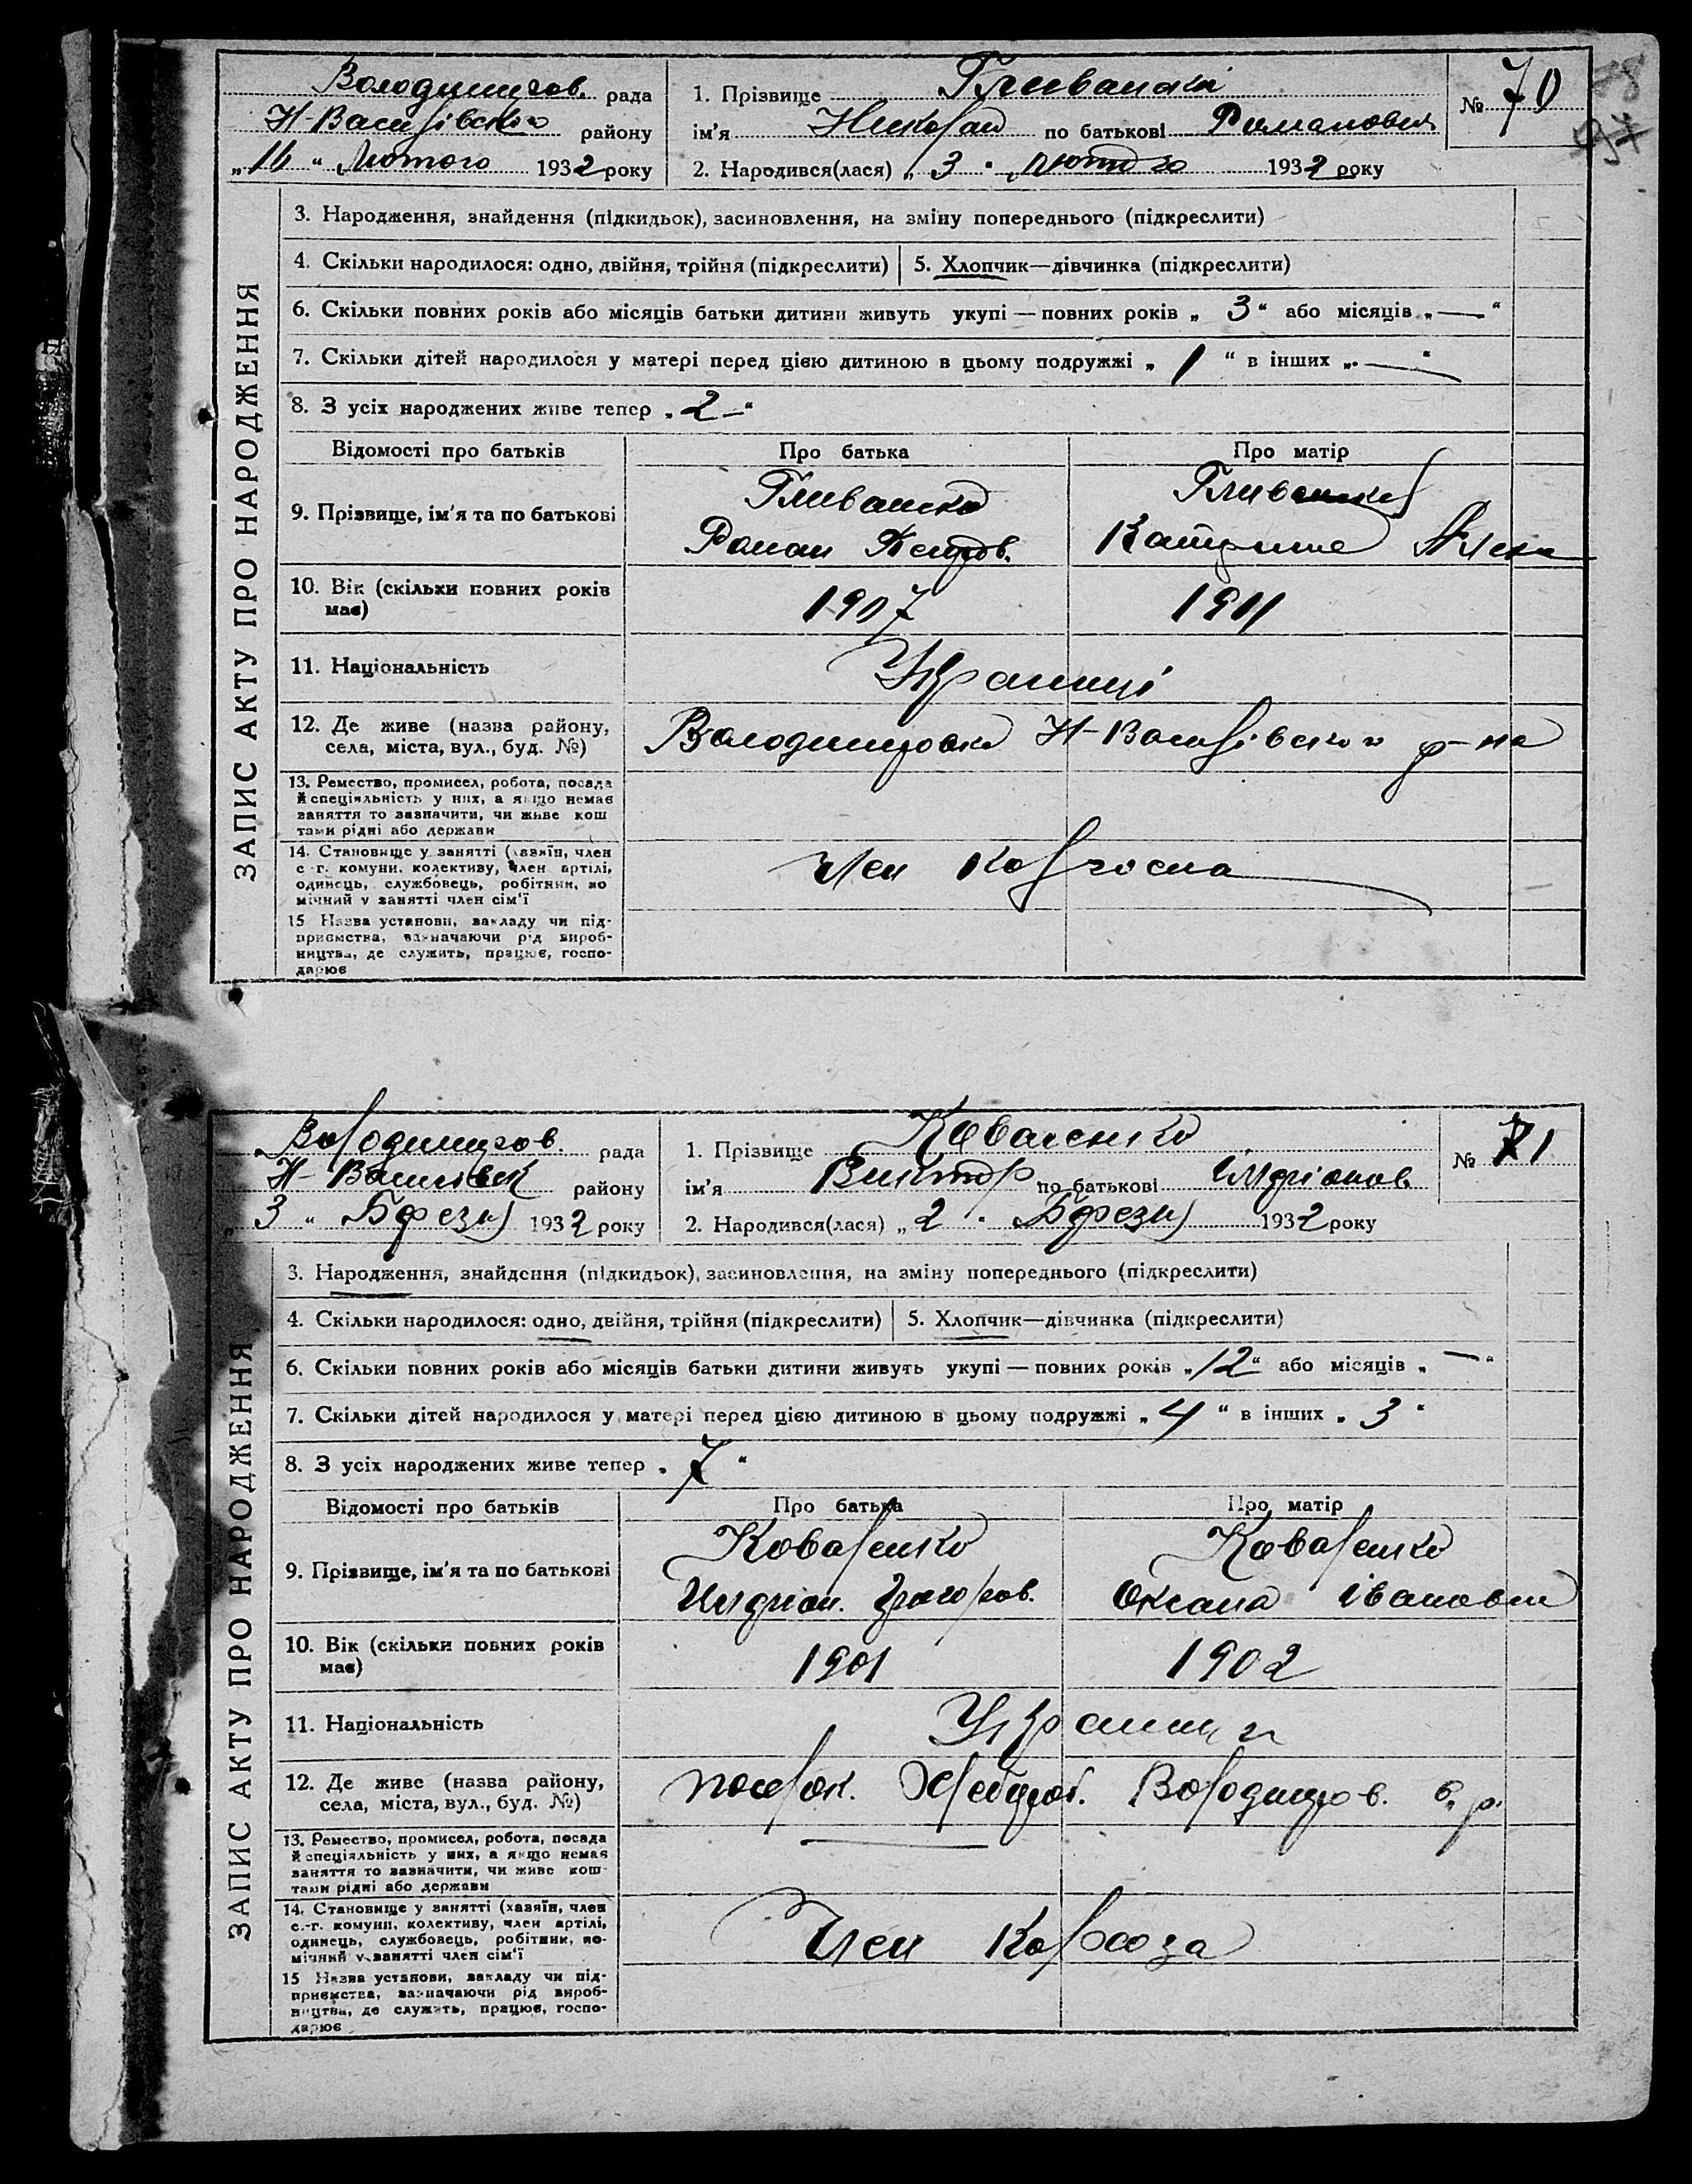 рада
Н-Василівсько району
"16" Лютого 1932 року
1. Прізвище
ім'я Николай по батькові Романович
2. Народився(лася) "3" лютого 1932 року
№ 70
ЗАПИС АКТУ ПРО НАРОДЖЕННЯ
3. Народження, знайдення (підкидьок), засиновлення, на зміну попереднього (підкреслити)
4. Скільки народилося: одно, двійня, трійня (підкреслити) 5. Хлопчик—дівчинка (підкреслити)
6. Скільки повних років або місяців батьки дитини живуть укупі — повних років „ 3 “ або місяців „ — “
7. Скільки дітей народилося у матері перед цією дитиною в цьому подружжі „ 1 “ в інших „ — “
8. З усіх народжених живе тепер „ 2 — “
Відомості про батьків Про батька Про матір
9. Прізвище, ім'я та по батькові
Роман Петров.
10. Вік (скільки повних років має) 1907 1911
11. Національність Українці
12. Де живе (назва району, села, міста, вул., буд. №) Н-Василівського р-на
13. Ремество, промисел, робота, посада
й спеціяльність у них, а якщо немає
заняття то зазначити, чи живе кош
тами рідні або держави
14. Становище у занятті (хазяїн, член
с.-г. комуни, колективу, член артілі,
одинець, службовець, робітник, по
мічний у занятті член сім'ї
член колгоспа
15 Назва установи, закладу чи під-
приємства, зазначаючи рід вироб-
ництва, де служить, працює, госпо-
дарює
рада
Н-Василівськ району
„ 3 “ Березня 1932 року
1. Прізвище Коваленко
ім'я Виктор по батькові
2. Народився(лася) „ 2 “ Березня 1932 року
№ 71
ЗАПИС АКТУ ПРО НАРОДЖЕННЯ
3. Народження, знайдення (підкидьок), засиновлення, на зміну попереднього (підкреслити)
4. Скільки народилося: одно, двійня, трійня (підкреслити) 5. Хлопчик—дівчинка (підкреслити)
6. Скільки повних років або місяців батьки дитини живуть укупі — повних років „ 12 “ або місяців „ — “
7. Скільки дітей народилося у матері перед цією дитиною в цьому подружжі „ 4 “ в інших „ 3 “
8. З усіх народжених живе тепер „ 7 “
Відомості про батьків Про батька Про матір
Коваленко Коваленко
9. Прізвище, ім'я та по батькові
Оксана Івановна
10. Вік (скільки повних років має) 1901 1902
11. Національність
12. Де живе (назва району, села, міста, вул., буд. №)
13. Ремество, промисел, робота, посада
й спеціяльність у них, а якщо немає
заняття то зазначити, чи живе кош-
тами рідні або держави
14. Становище у занятті (хазяїн, член
с.-г. комуни, колективу, член артілі,
одинець, службовець, робітник, по-
мічний у занятті член сім'ї
Член Колхоза
15 Назва установи, закладу чи під-
приємства, зазначаючи рід вироб-
ництва, де служить, працює, госпо-
дарює